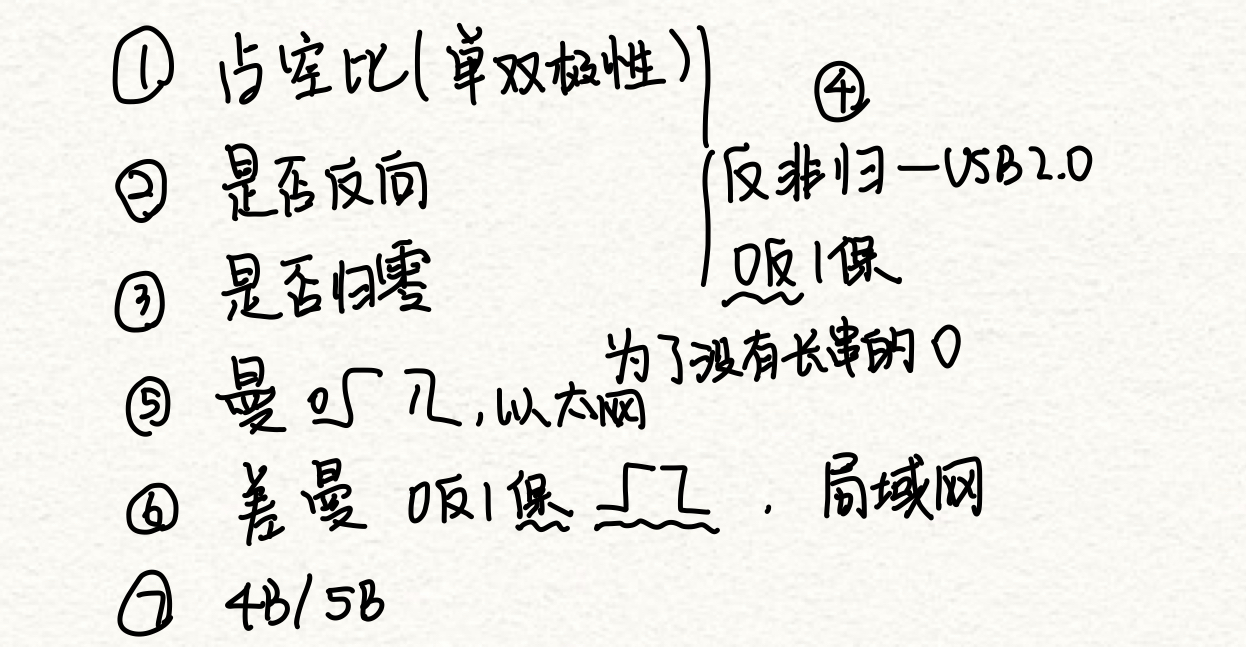 ① 占空比(单双极性)
② 是否反向
③ 是否归零
④
反非归—USB2.0
0反1保
为了没有长串的0
⑤ 曼 0 1,以太网
⑥ 差曼 0反1保 . 局域网
⑦ 4B/5B